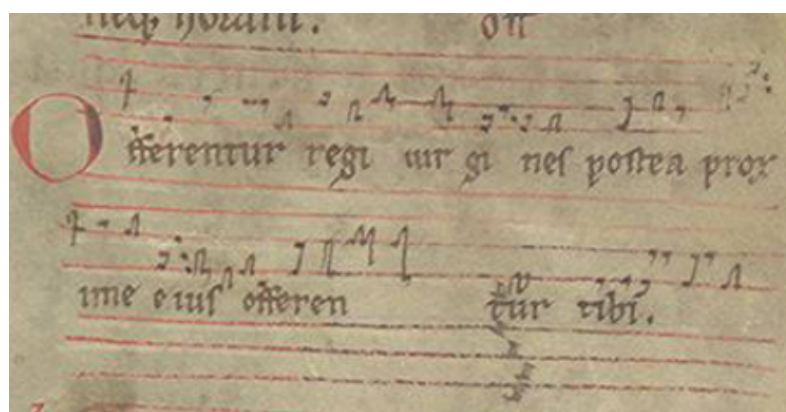 neq, horam. off
Offerentur regi uir gi nes postea prox
ime eius offeren tur tibi.